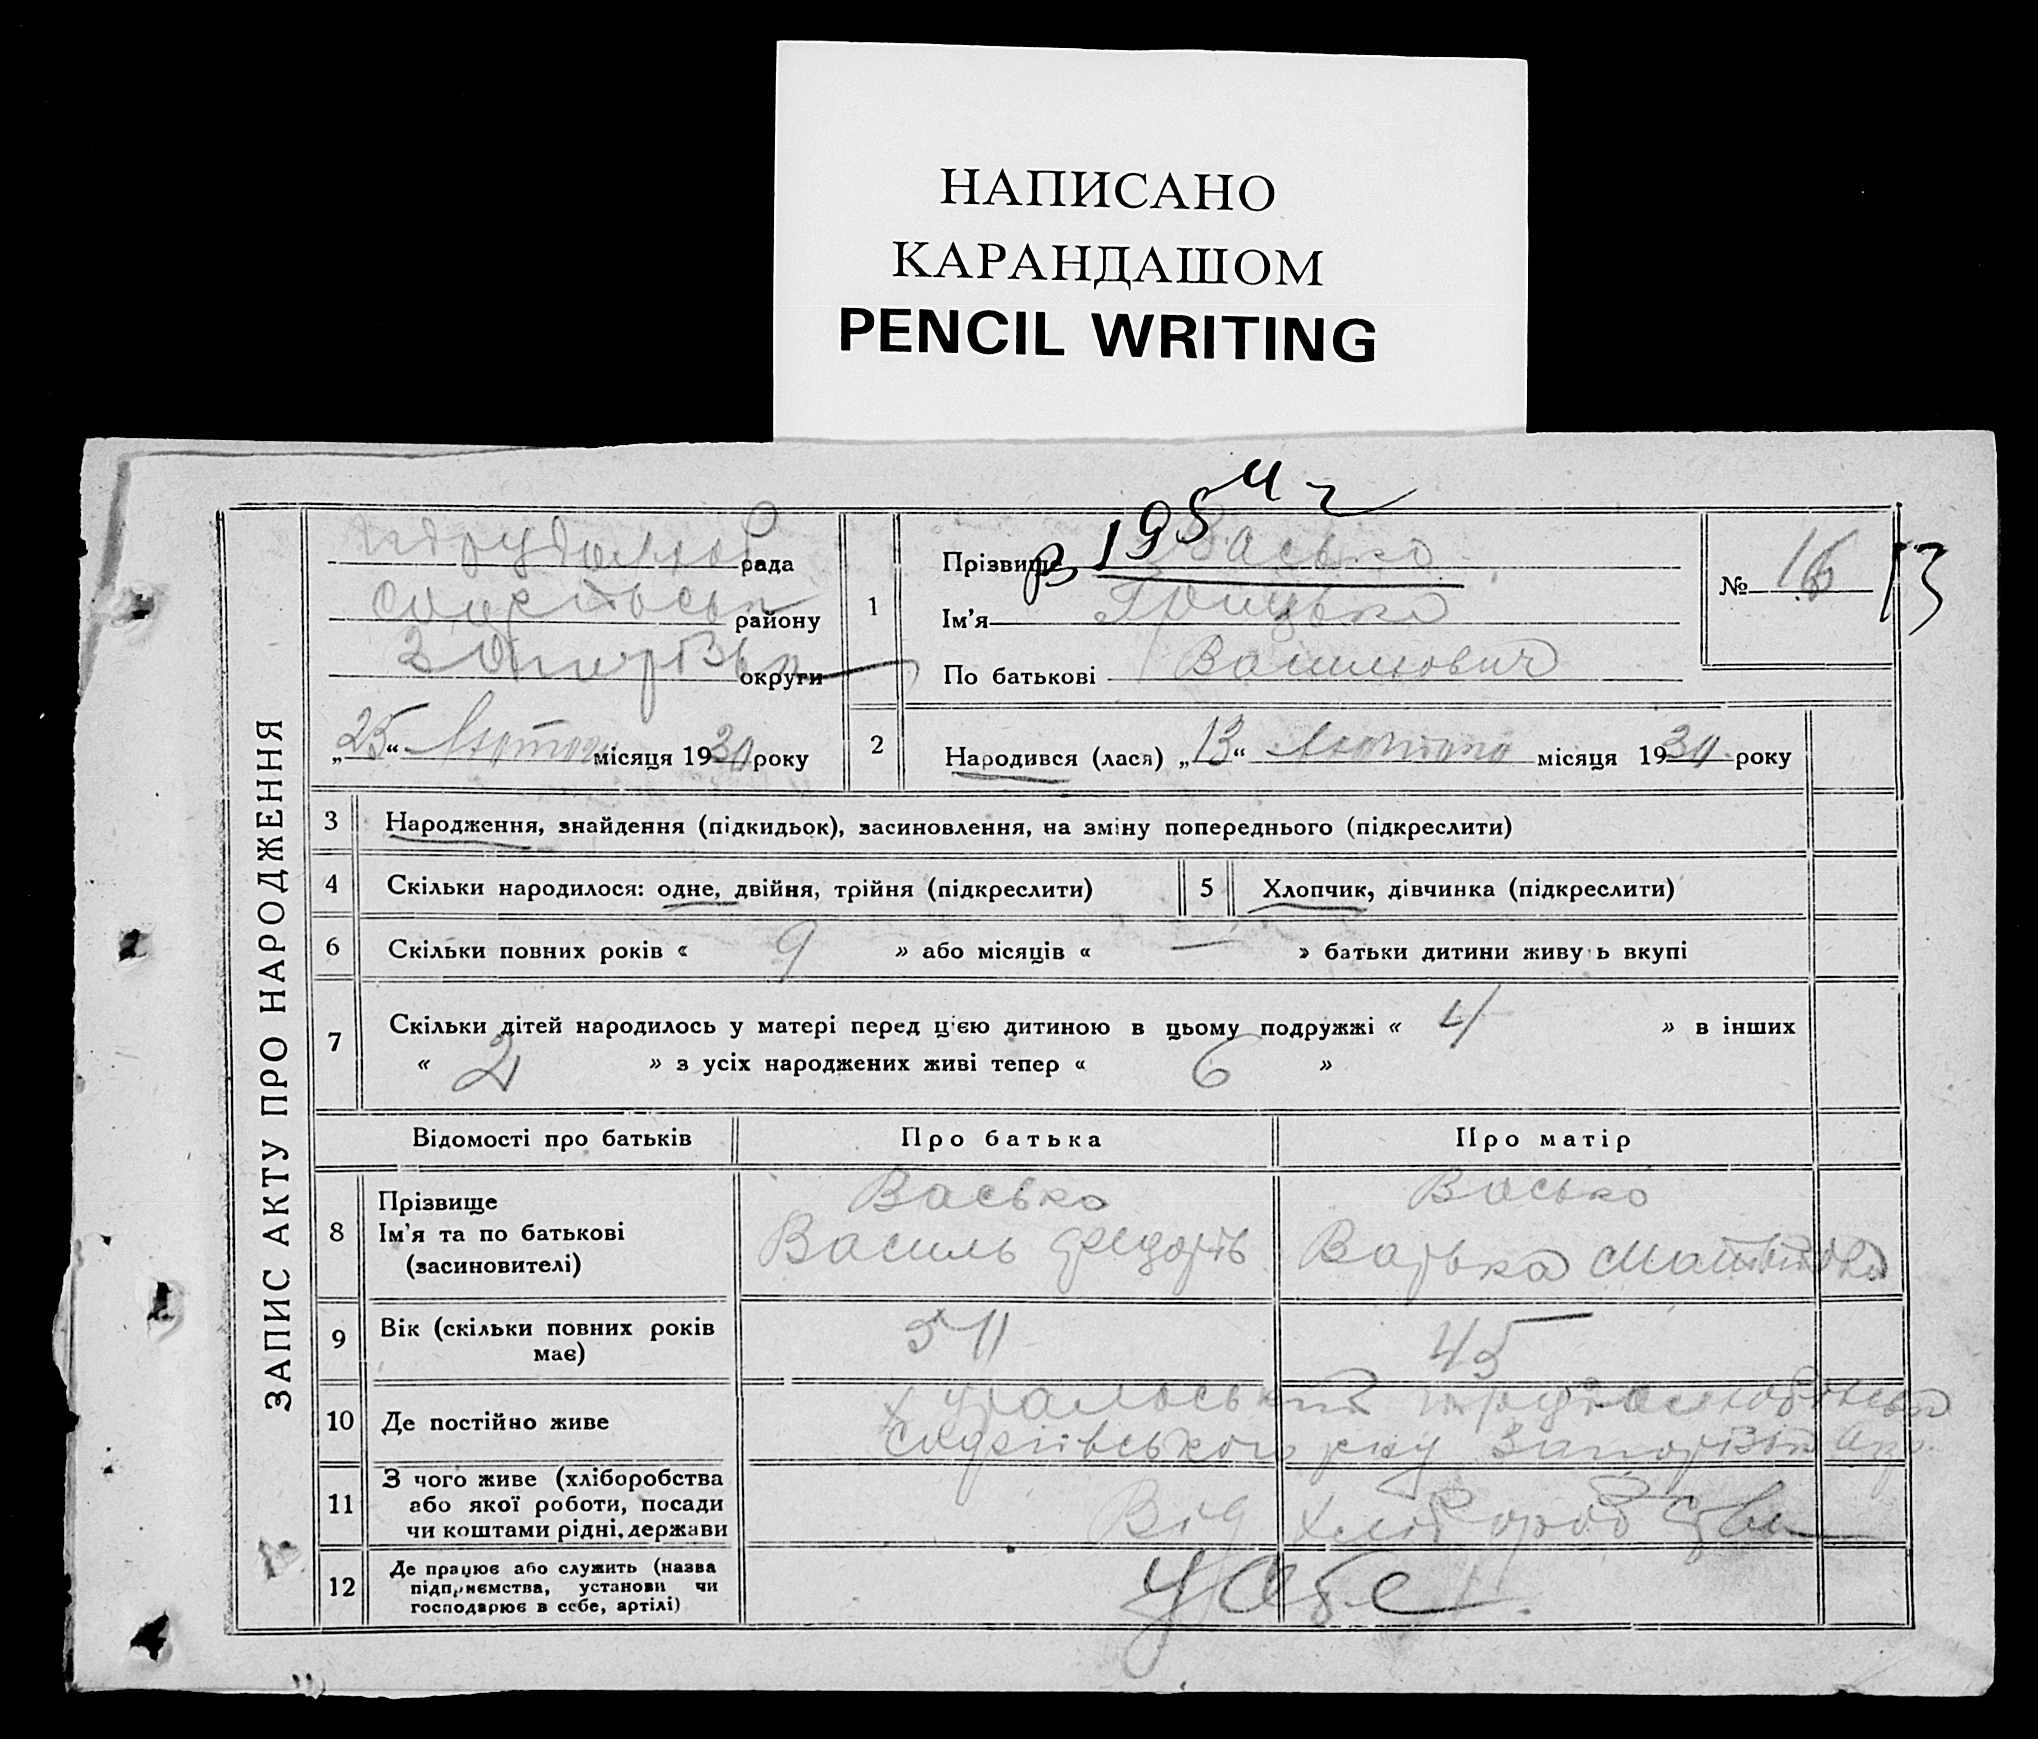 НАПИСАНО
КАРАНДАШОМ
PENCIL WRITING
ЗАПИС АКТУ ПРО НАРОДЖЕННЯ
рада
району
округи
„25“ Лютого місяця 1930 року
1
Прізвище Васько
Ім'я Грицько
По батькові Васильович
№ 16
13
2
Народився (лася) „13“ Лютого місяця 1930 року
3 Народження, знайдення (підкидьок), засиновлення, на зміну попереднього (підкреслити)
4 Скільки народилося: одне, двійня, трійня (підкреслити) 5 Хлопчик, дівчинка (підкреслити)
6 Скільки повних років « 9 » або місяців « — » батьки дитини живу ь вкупі
7 Скільки дітей народилось у матері перед цією дитиною в цьому подружжі « 4 » в інших
« 2 » з усіх народжених живі тепер « 6 »
Відомості про батьків Про батька Про матір
8 Прізвище
Ім'я та по батькові
(засиновителі)
Васько
Василь Федорів
Васько
Варька
9 Вік (скільки повних років
має)
45
10 Де постійно живе
11 З чого живе (хліборобства
або якої роботи, посади
чи коштами рідні, держави
Від хліборобства
12 Де працює або служить (назва
підприємства, установи чи
господарює в себе, артілі)
У себе